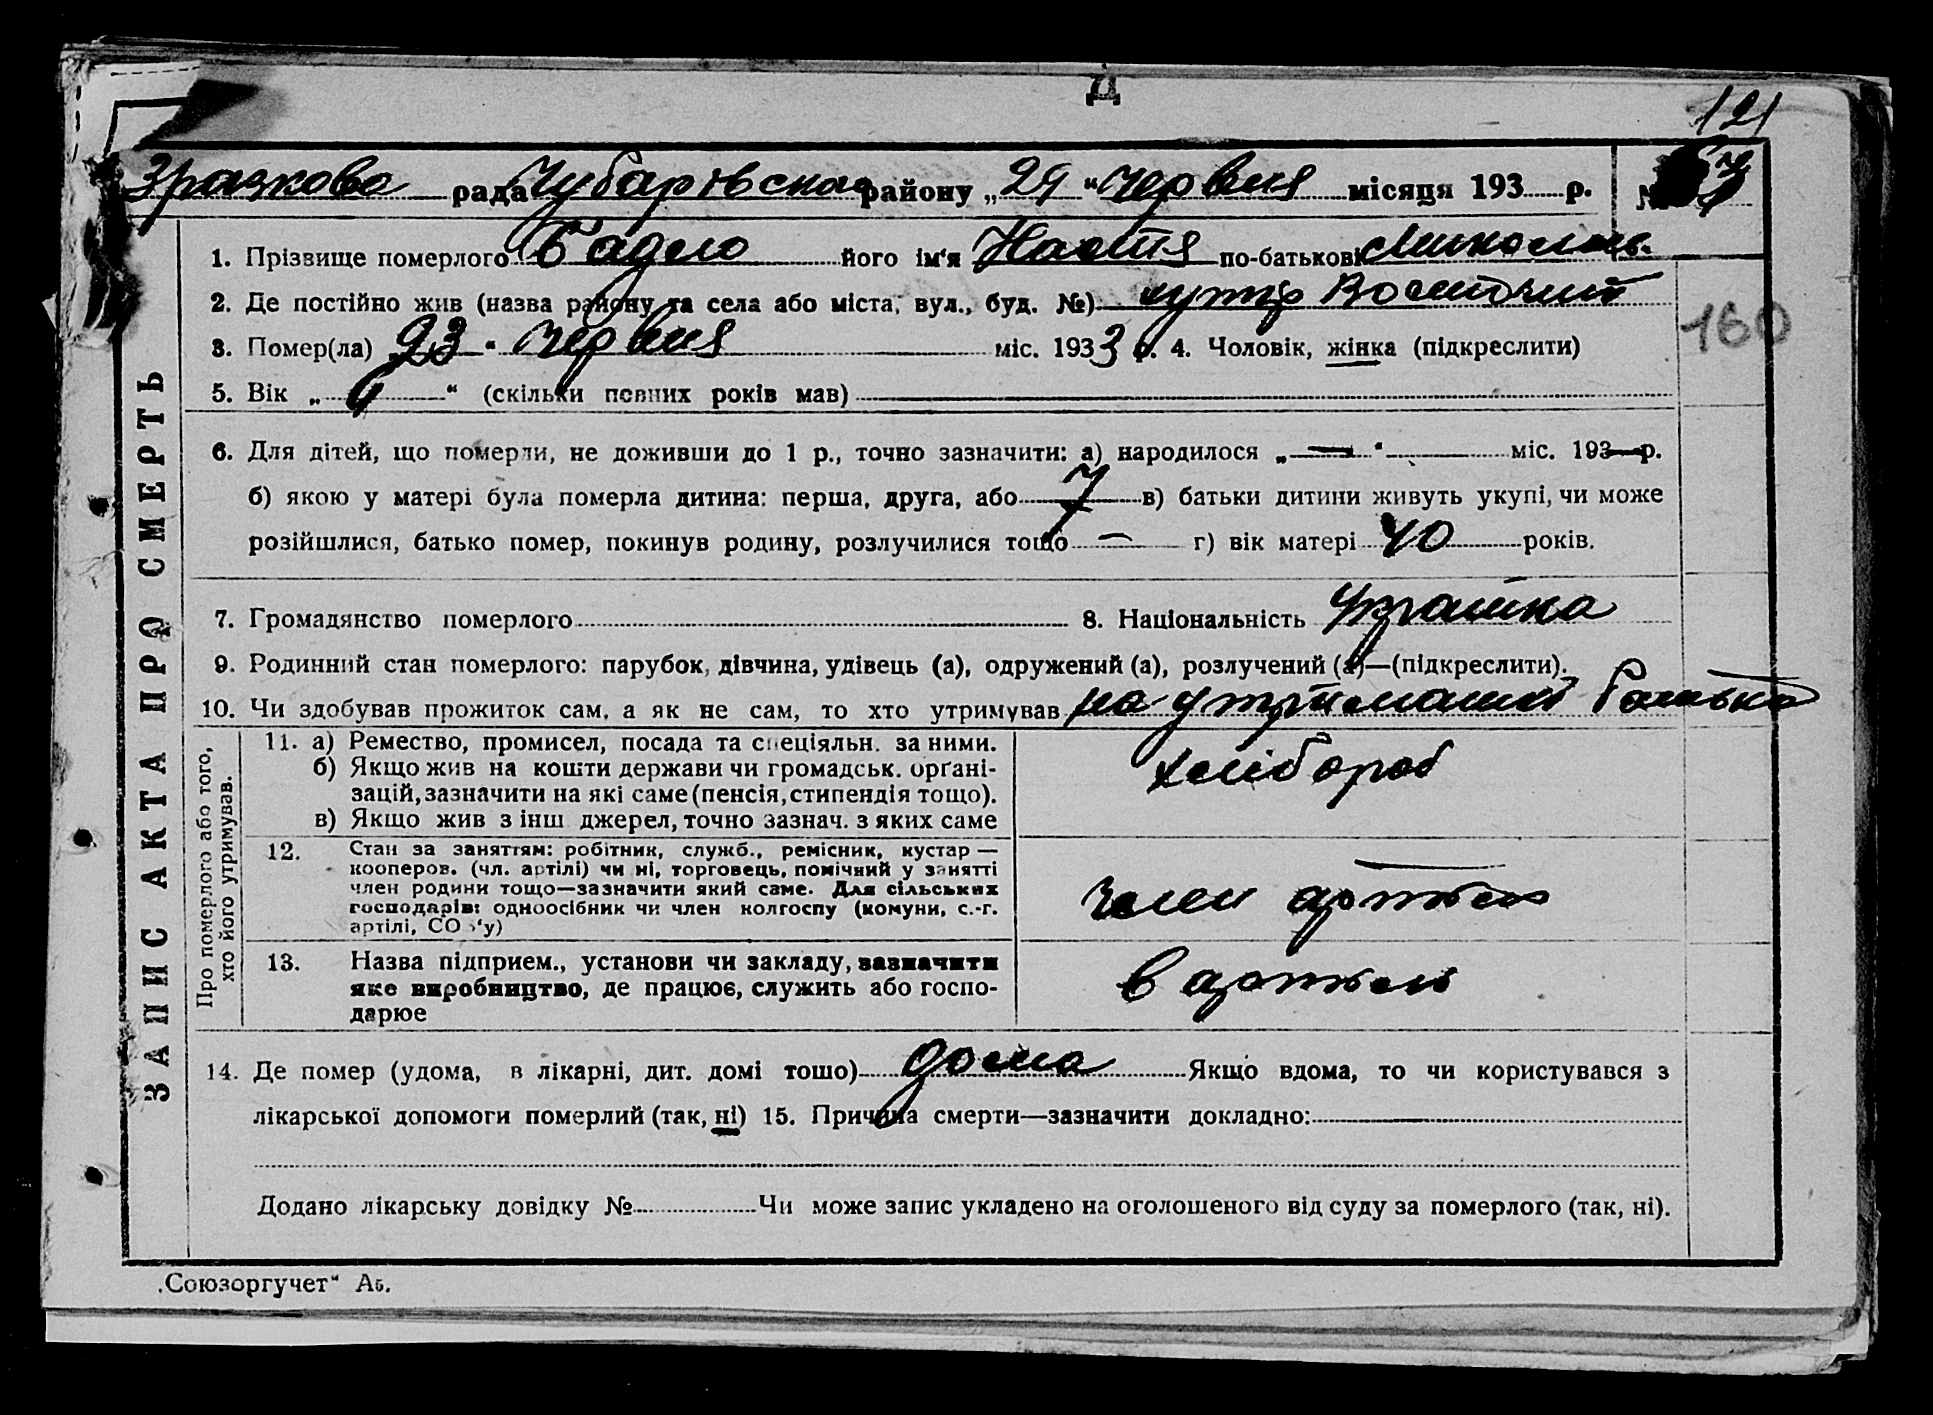 Д
121
Зразкова рада Чубарівська району „29“ червня місяця 193 р. №
1. Прізвище померлого Бадло його ім'я Настя по-батькові Миколаїв.
2. Де постійно жив (назва району та села або міста, вул., буд. №) хутір
3. Помер(ла) „23“ червня міс. 1933 р. 4. Чоловік, жінка (підкреслити)
160
5. Вік „ “ (скільки повних років мав)
6. Для дітей, що померли, не доживши до 1 р., точно зазначити: а) народилося „—“ міс. 193—р.
б) якою у матері була померла дитина: перша, друга, або 7 в) батьки дитини живуть укупі, чи може
розійшлися, батько помер, покинув родину, розлучилися тощо — г) вік матері 40 років.
7. Громадянство померлого 8. Національність
9. Родинний стан померлого: парубок, дівчина, удівець (а), одружений (а), розлучений (а)—(підкреслити).
10. Чи здобував прожиток сам, а як не сам, то хто утримував на утриманні батька
ЗАПИС АКТА ПРО СМЕРТЬ
Про померлого або того,
хто його утримував.
11. а) Ремество, промисел, посада та спеціяльн. за ними.
б) Якщо жив на кошти держави чи громадськ. орґані-
зацій, зазначити на які саме (пенсія, стипендія тощо).
в) Якщо жив з інш джерел, точно зазнач. з яких саме
хлібороб
12. Стан за заняттям: робітник, служб., ремісник, кустар —
кооперов. (чл. артілі) чи ні, торговець, помічний у занятті
член родини тощо—зазначити який саме. Для сільських
господарів: одноосібник чи член колгоспу (комуни, с.-г.
артілі, СОЗ'у)
член артели
13. Назва підприєм., установи чи закладу, зазначити
яке виробництво, де працює, служить або госпо-
дарює
в артели
14. Де помер (удома, в лікарні, дит. домі тощо) дома Якщо вдома, то чи користувався з
лікарської допомоги померлий (так, ні) 15. Причина смерти—зазначити докладно:
Додано лікарську довідку № Чи може запис укладено на оголошеного від суду за померлого (так, ні).
„Союзоргучет“ А5.